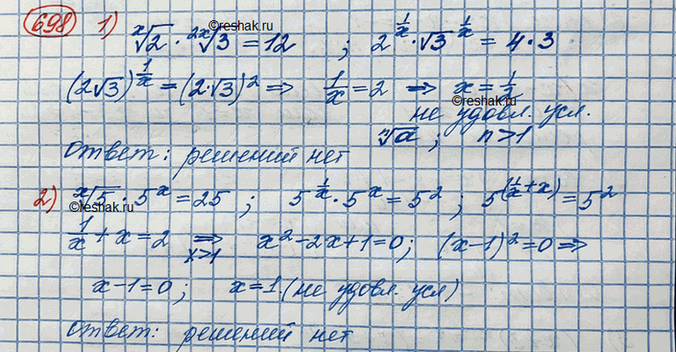 698 1) ˣ√2 · ²ˣ√3 = 12 ; 2^(1/x) · √3^(1/x) = 4 · 3
©reshak.ru
(2√3)^(1/x) = (2·√3)² ⇒ 1/x = 2 ⇒ x = 1/2
©reshak.ru
не удовл. усл.
ⁿ√a ; n>1
ответ: решений нет
2) ˣ√5 · 5ˣ = 25 ; 5^(1/x) · 5ˣ = 5² ; 5^(1/x + x) = 5²
©reshak.ru
1/x + x = 2 ⇒ x>1 x² - 2x + 1 = 0 ; (x-1)² = 0 ⇒
x - 1 = 0 ; x = 1 (не удовл. усл)
ответ: решений нет